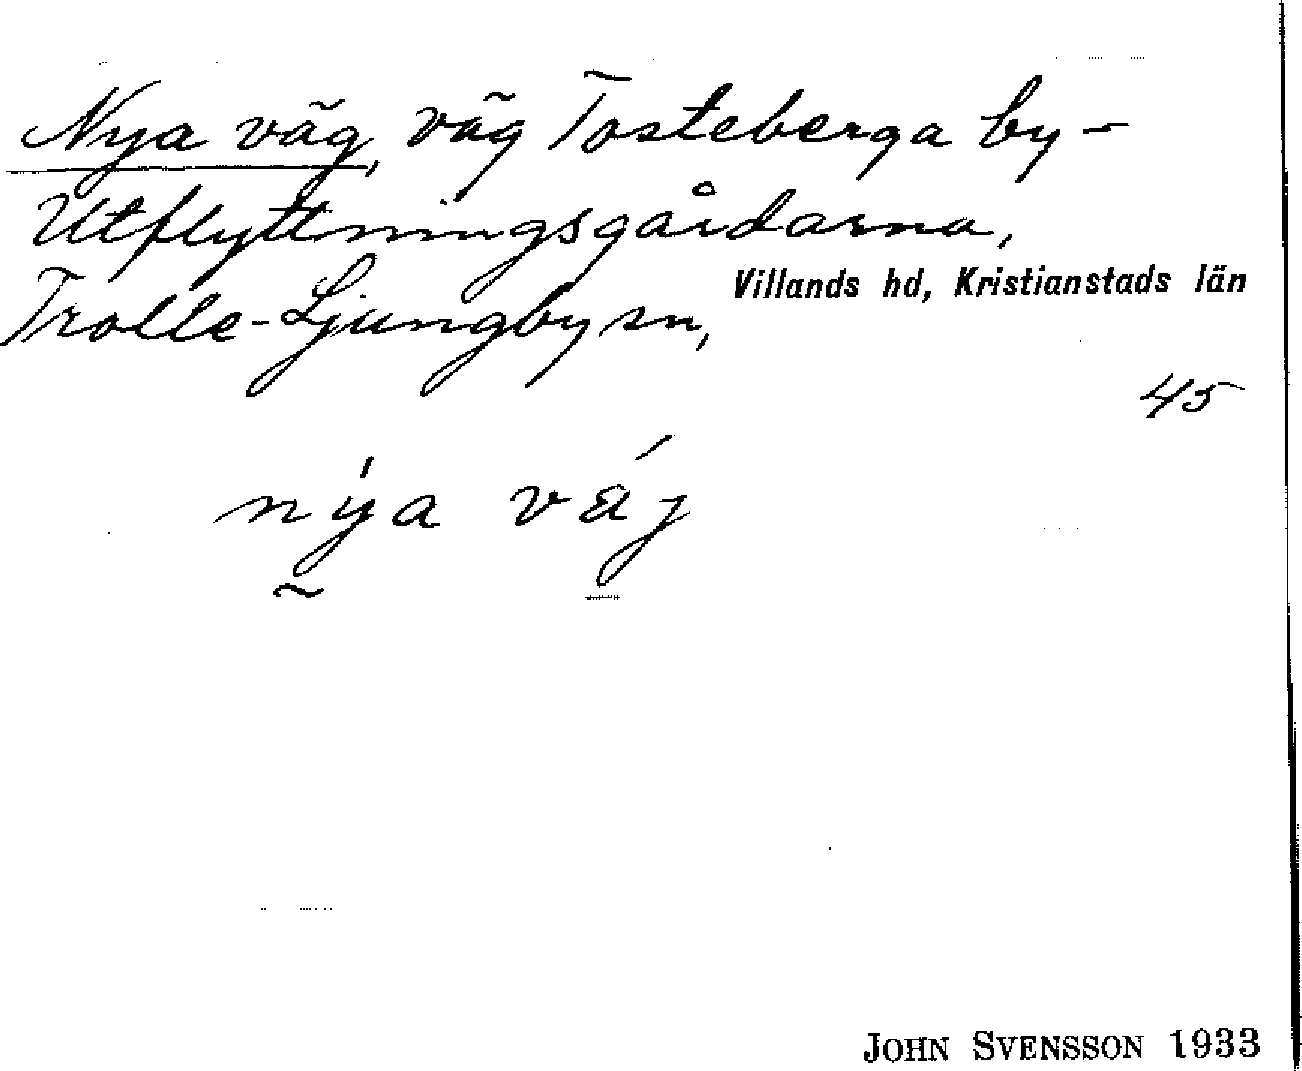 Nya väg, väg Tosteberga by -
Utflyttningsgårdarna,
Villands hd, Kristianstads län
Trolle-Ljungby sn,
45
nýa váj
JOHN SVENSSON 1933